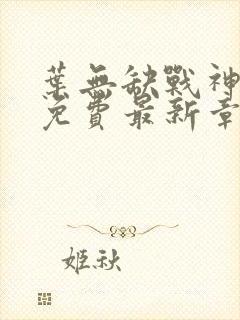 葉無缺戰神
免費最新章
姬秋